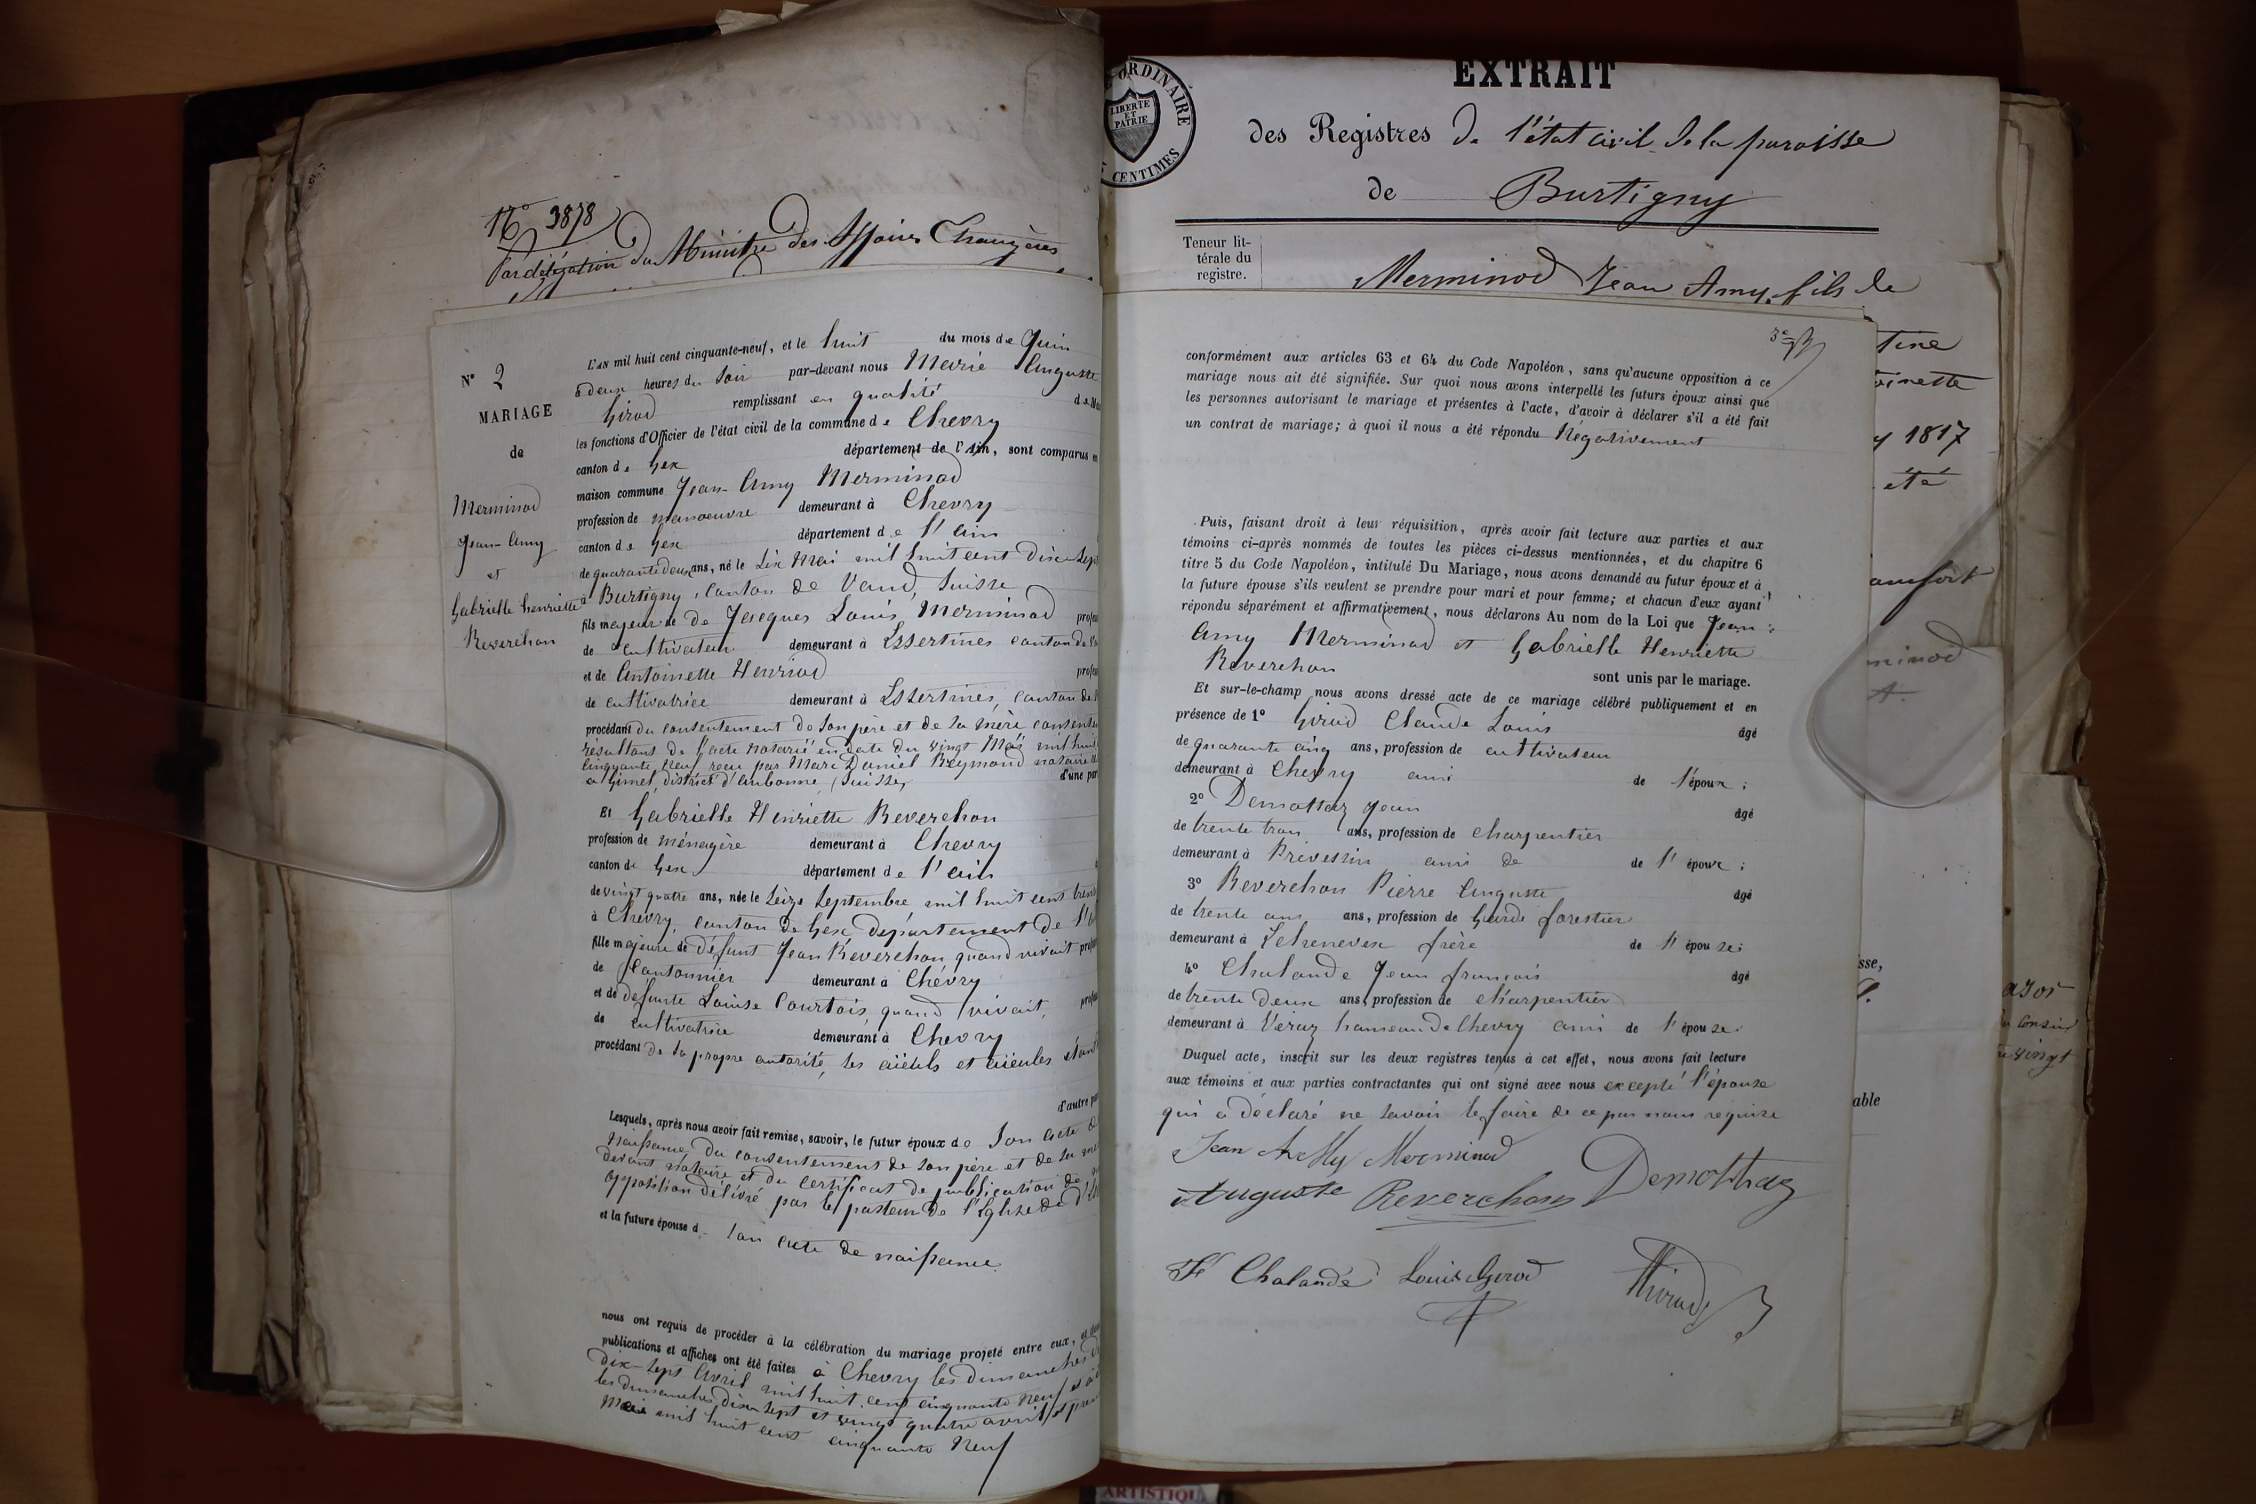 N° 3878
Par délégation du Ministre des Affaires Etrangères
N° 2
MARIAGE
de
Merminod
Jean-Amy
et
Gabrielle henriette
Reverchon
L'AN mil huit cent cinquante-neuf, et le huit du mois de Juin
à deux heures du Soir par-devant nous Marie Auguste
Girod remplissant en qualité de
les fonctions d'Officier de l'état civil de la commune de Chevry
canton de Gex département de l'Ain, sont comparus en
maison commune Jean-Amy Merminod
profession de manoeuvre demeurant à Chevry
canton de Gex département de l'ain
de quarante deux ans, né le Six Mai mil huit cent dix sept
à Burtigny, Canton de Vaud, Suisse
fils majeur de de Jacques Louis Merminod
de cultivateur demeurant à Essertines canton de
et de Antoinette Henriod
de cultivatrice demeurant à Essertines, Canton de
procédant du consentement de son père et de sa mère
résultant de l'acte notarié en date du vingt Mai mil huit
Cinquante Neuf reçu par Marc Daniel Reymond notaire
à Gimel, district d'aubonne (Suisse) d'une par
Et Gabrielle Henriette Reverchon
profession de ménagère demeurant à Chevry
canton de Gex département de l'ain
de vingt quatre ans, née le Seize Septembre mil huit cent
à Chevry, canton de Gex département de l'
fille majeure de défunt Jean Reverchon quand vivait
de Cantonnier demeurant à Chevry
et de defunte Louise Courtois, quand vivait,
de cultivatrice demeurant à Chevry
procédant de sa propre autorité, ses aïeuls et aïeules étant
d'autre par
Lesquels, après nous avoir fait remise, savoir, le futur époux de Son acte de
Naissance, du consentement de son père et de sa
devant notaire et du Certificat de publication de
opposition délivré par le pasteur de l'Eglise de
et la future épouse d son acte de naissance
nous ont requis de procéder à la célébration du mariage projeté entre eux,
publications et affiches ont été faites à Chevry les dimanches
dix-sept Avril mil huit cent cinquante Neuf
les dimanches dix sept et vingt quatre avril et
Mai mil huit cent cinquante Neuf
ORDINAIRE
LIBERTE
ET
PATRIE
CENTIMES
EXTRAIT
des Registres de l'état civil de la paroisse
de Burtigny
Teneur lit-
térale du
registre.
Merminod Jean Amy, fils de
conformément aux articles 63 et 64 du Code Napoléon, sans qu'aucune opposition à ce
mariage nous ait été signifiée. Sur quoi nous avons interpellé les futurs époux ainsi que
les personnes autorisant le mariage et présentes à l'acte, d'avoir à déclarer s'il a été fait
un contrat de mariage; à quoi il nous a été répondu Négativement
Puis, faisant droit à leur réquisition, après avoir fait lecture aux parties et aux
témoins ci-après nommés de toutes les pièces ci-dessus mentionnées, et du chapitre 6
titre 5 du Code Napoléon, intitulé Du Mariage, nous avons demandé au futur époux et à
la future épouse s'ils veulent se prendre pour mari et pour femme; et chacun d'eux ayant
répondu séparément et affirmativement, nous déclarons Au nom de la Loi que Jean
Amy Merminod et Gabrielle Henriette
Reverchon sont unis par le mariage.
Et sur-le-champ nous avons dressé acte de ce mariage célébré publiquement et en
présence de 1° Girod Claude Louis âgé
de quarante cinq ans, profession de cultivateur
demeurant à Chevry ami de l'époux;
2° Demottaz Jean âgé
de trente trois ans, profession de charpentier
demeurant à Prévessin ami de de l'époux;
3° Reverchon Pierre Auguste âgé
de trente ans ans, profession de Garde forestier
demeurant à Echenevex frère de l'épouse;
4° Chalande Jean françois âgé
de trente Deux ans, profession de charpentier
demeurant à Véraz hameau de Chevry ami de l'épouse.
Duquel acte, inscrit sur les deux registres tenus à cet effet, nous avons fait lecture
aux témoins et aux parties contractantes qui ont signé avec nous excepté l'épouse
qui a déclaré ne savoir le faire de ce par nous requise
Jean Amy Merminod
Auguste Reverchon Demotthaz
Chalande Louis Girod Girod
tine
oinette
y 1817
été
minod
A.
sse,
able
vingt
ARTISTIQU